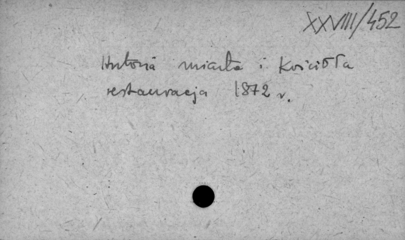 XXVIII/452
Historia miasta i Kościoła
restauracja 1872 r.